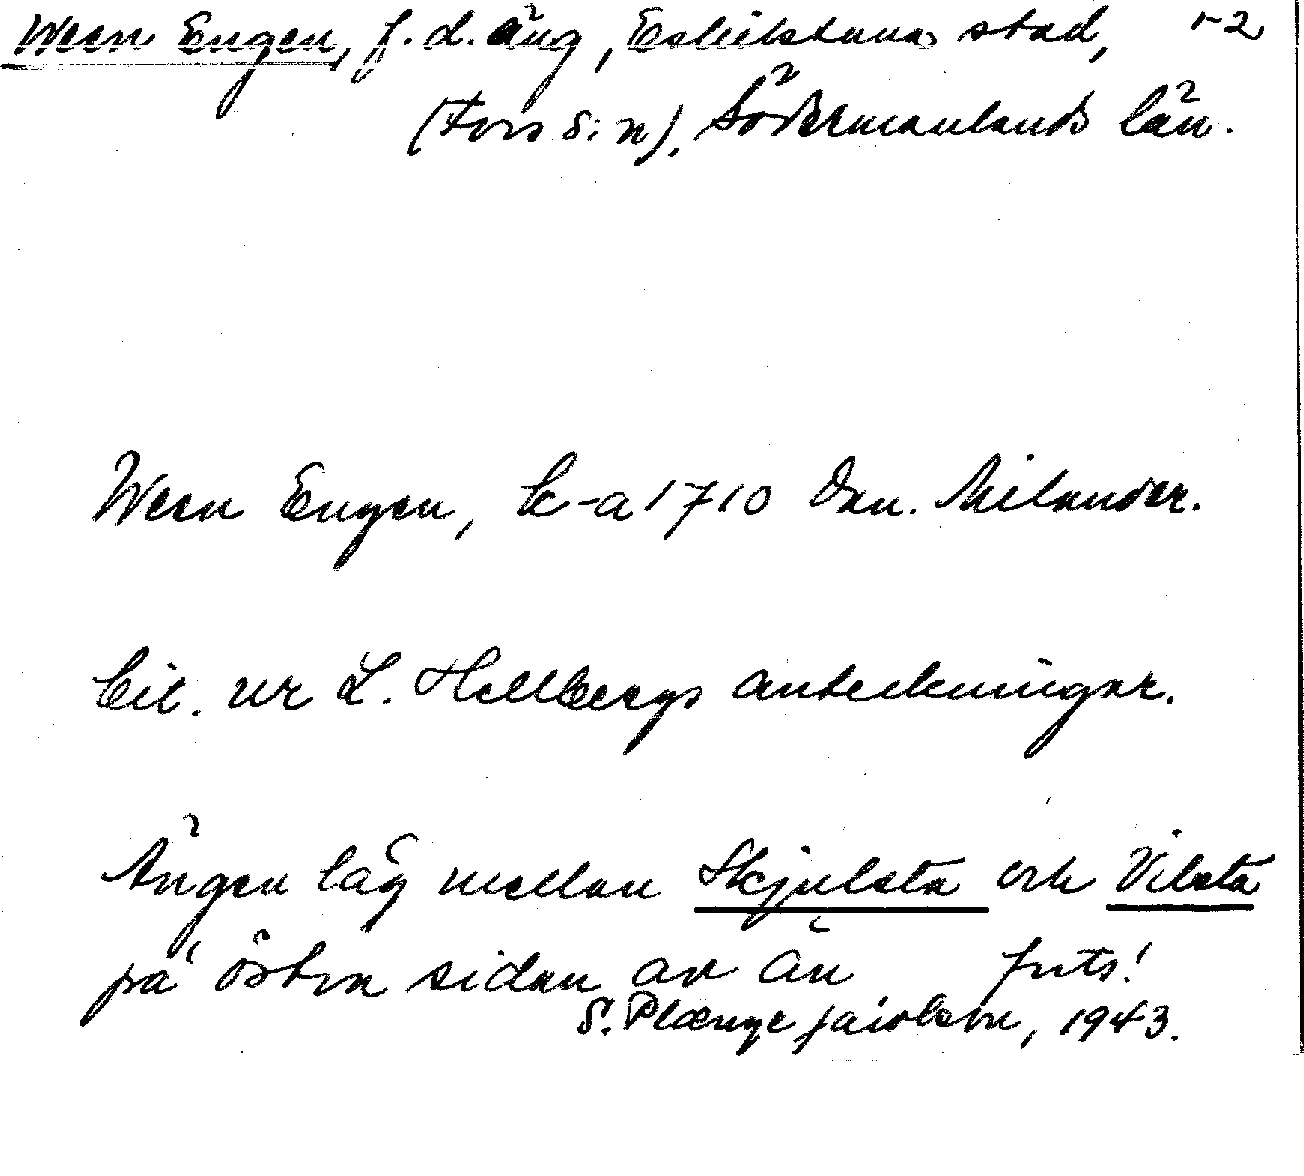 Wern Engen, f.d. äng, Eskilstuna stad, 1-2
(Fors s:n), Södermanlands län.
Wern Engen, k-a 1710 Dan. Milander.
Cit. ur L. Hellbergs anteckningar.
Ängen låg mellan Skjulsta och Vilsta
på östra sidan av ån forts!
S. Plænge Jacobson, 1943.